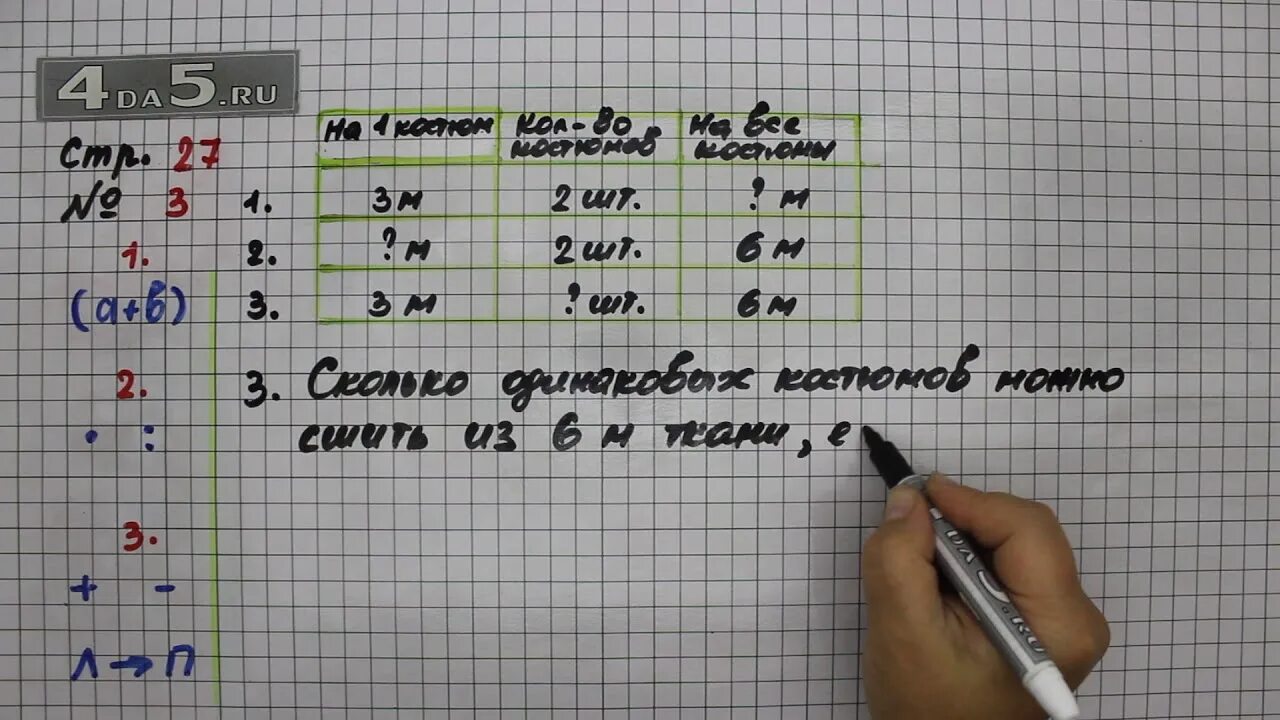 4DA5.RU
Стр. 27
№ 3
1.
(а+в)
2.
· :
3.
+ -
Л → П
На 1 костюм Кол-во костюмов На все костюмы
1. 3 м 2 шт. ? м
2. ? м 2 шт. 6 м
3. 3 м ? шт. 6 м
3. Сколько одинаковых костюмов можно
сшить из 6 м ткани, е
DA5.RU